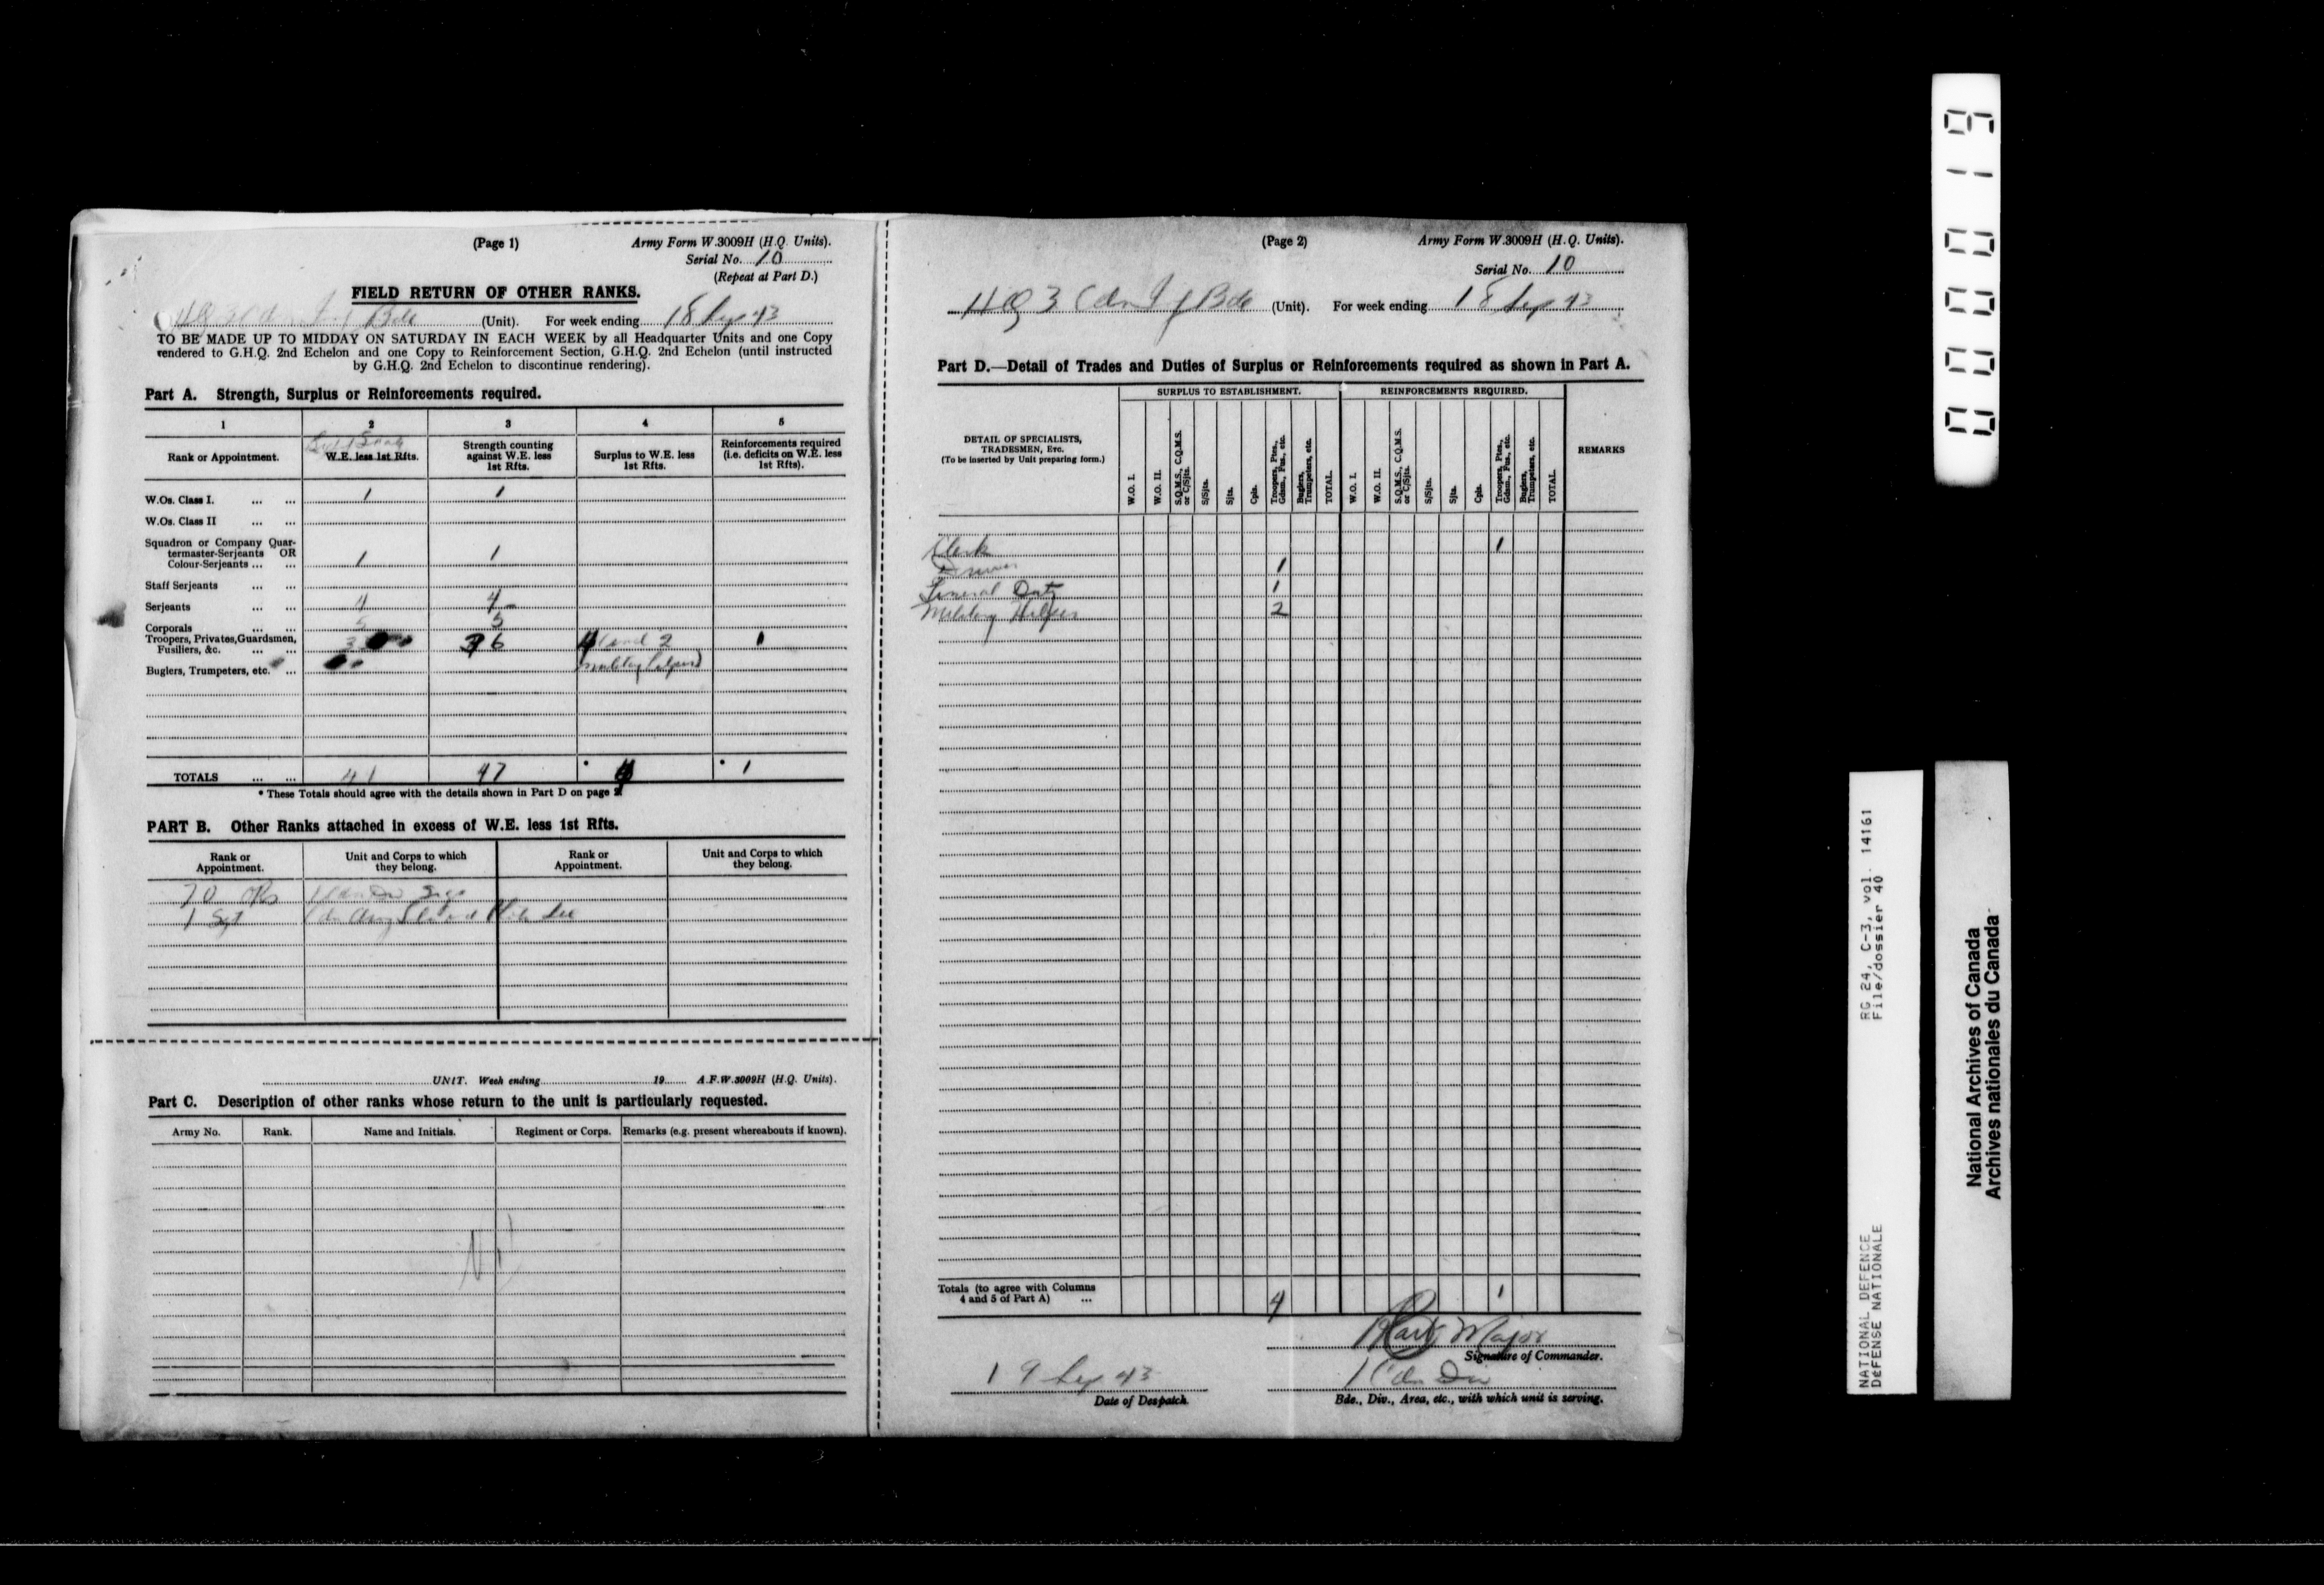 (Page 1) Army Form W.3009H (H.Q. Units).
Serial No. 10
(Repeat at Part D.)
FIELD RETURN OF OTHER RANKS.
HQ 3 Cdn Inf Bde (Unit). For week ending 18 Sep 43
TO BE MADE UP TO MIDDAY ON SATURDAY IN EACH WEEK by all Headquarter Units and one Copy
rendered to G.H.Q. 2nd Echelon and one Copy to Reinforcement Section, G.H.Q. 2nd Echelon (until instructed
by G.H.Q. 2nd Echelon to discontinue rendering).
Part A. Strength, Surplus or Reinforcements required.
1 2 3 4 5
Rank or Appointment. W.E. less 1st Rfts. Strength counting against W.E. less 1st Rfts. Surplus to W.E. less 1st Rfts. Reinforcements required (i.e. deficits on W.E. less 1st Rfts).
W.Os. Class I. ... ... 1 1
W.Os. Class II ... ...
Squadron or Company Quar-
termaster-Serjeants OR
Colour-Serjeants ... ... 1 1
Staff Serjeants ... ...
Serjeants ... ... 4 4
Corporals ... ... 5 5
Troopers, Privates, Guardsmen,
Fusiliers, &c. ... ... 36 and 2 1
Buglers, Trumpeters, etc. ... military helpers)
TOTALS ... ... 41 47 * 4 * 1
* These Totals should agree with the details shown in Part D on page 2.
PART B. Other Ranks attached in excess of W.E. less 1st Rfts.
Rank or Appointment. Unit and Corps to which they belong. Rank or Appointment. Unit and Corps to which they belong.
70 ORs 1 Cdn Div Sigs
1 Sgt Cdn Army
UNIT. Week ending 19 A.F.W.3009H (H.Q. Units).
Part C. Description of other ranks whose return to the unit is particularly requested.
Army No. Rank. Name and Initials. Regiment or Corps. Remarks (e.g. present whereabouts if known).
Nil
(Page 2) Army Form W.3009H (H.Q. Units).
Serial No. 10
HQ 3 Cdn Inf Bde (Unit). For week ending 18 Sep 43
Part D.—Detail of Trades and Duties of Surplus or Reinforcements required as shown in Part A.
DETAIL OF SPECIALISTS, TRADESMEN, Etc. (To be inserted by Unit preparing form.)
SURPLUS TO ESTABLISHMENT. REINFORCEMENTS REQUIRED. REMARKS
W.O. I. W.O. II. S.Q.M.S., C.Q.M.S. or C/Sjts. S/Sjts. Sjts. Cpls. Troopers, Ptes., Gdsm., Fus., etc. Buglers, Trumpeters, etc. TOTAL.
W.O. I. W.O. II. S.Q.M.S., C.Q.M.S. or C/Sjts. S/Sjts. Sjts. Cpls. Troopers, Ptes., Gdsm., Fus., etc. Buglers, Trumpeters, etc. TOTAL.
Clerk 1
Driver 1
General Duty 1
Military Helpers 2
Totals (to agree with Columns
4 and 5 of Part A) ... 4 1
Major
Signature of Commander.
19 Sep 43 1 Cdn Div
Date of Despatch. Bde., Div., Area, etc., with which unit is serving.
0000019
RG 24, C-3, vol. 14161
File/dossier 40
NATIONAL DEFENCE
DÉFENSE NATIONALE
National Archives of Canada
Archives nationales du Canada